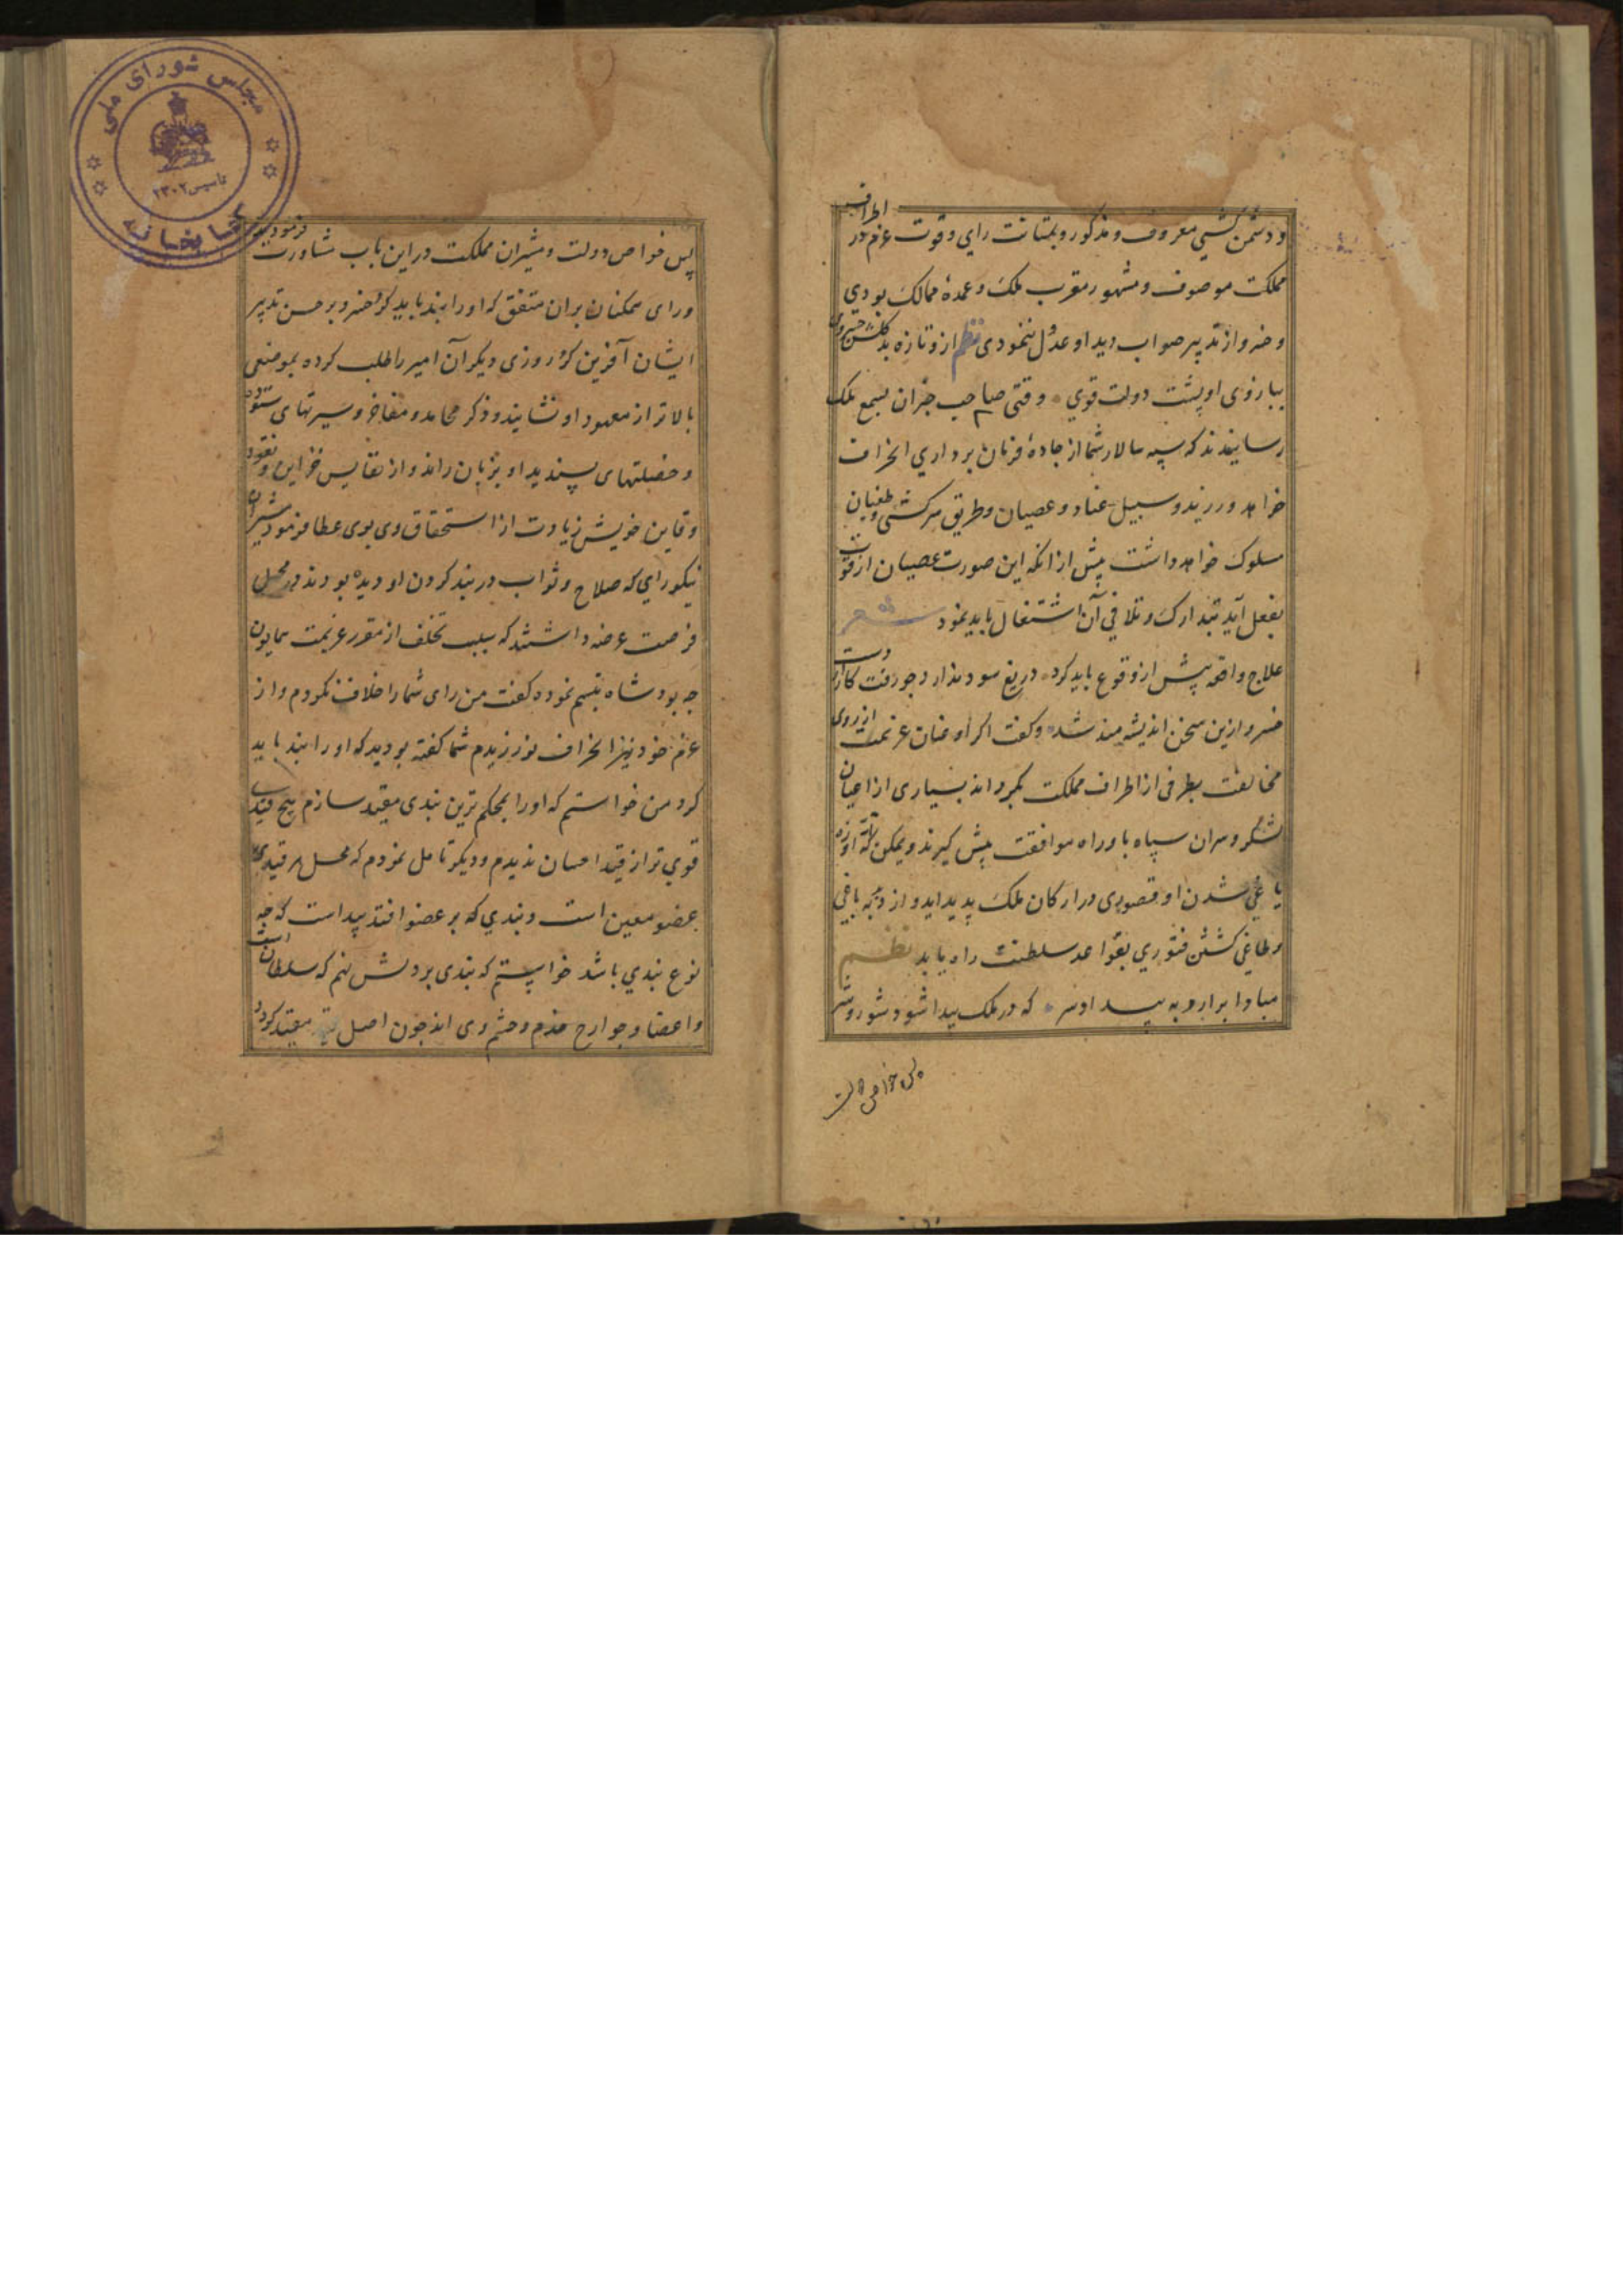 و دشمن کشی معروف و مذکور و بمتانت رای و قوت عزم در اطراف
مملکت موصوف و مشهور مقرب ملک و عمدهٔ ممالک بودی
و خسرو از تدبیر صواب دید او عدول ننمودی نظم ازو تازه بد گلشن خسروی
ببازوی او پشت دولت قوی وقتی صاحب خبران بسمع ملک
رسانیدند که سپه سالار شما از جادهٔ فرمان برداری انحراف
خواهد ورزید و سبیل عناد و عصیان و طریق سرکشی و طغیان
مسلوک خواهد داشت پیش از انکه این صورت عصیان از قوت
بفعل آید بتدارک و تلافی آن اشتغال باید نمود شعر
علاج واقعه پیش از وقوع باید کرد دریغ سود ندارد جو رفت کار از دست
خسرو ازین سخن اندیشه مند شد و کفت اکر او عنان عزیمت از روی
مخالفت بطرفی از اطراف مملکت کرداند بسیاری از اعیان
لشکر و سران سپاه با او راه موافقت پیش کیرند و یمکن که از
یاغی شدن او قصوری در ارکان ملک پدید اید و از وجه باغی
و طاغی کشتن فتوری بقواعد سلطنت راه یابد نظم
مبادا برارد به بیداد سر که در ملک پیدا شود شور و شر
پس خواص دولت
مجلس شورای ملی
کتابخانه
تاسیس ۱۳۰۲
پس خواص دولت و مشیران مملکت در این باب مشاورت فرمود
و رای همکنان بران متفق که او را بند باید کرد خسرو بر حسن تدبیر
ایشان آفرین کرد روزی دیکر آن امیر را طلب کرده بموضعی
بالاتر از معهود او نشانید و ذکر محامد و مفاخر و سیرتهای ستوده
و خصلتهای پسندیده او بزبان راند و از نفایس خزاین و نقود
دفاین خویش زیادت از استحقاق وی بوی عطا فرمود مشیران
نیکو رای که صلاح و ثواب در بند کردن او دیده بودند در محل
فرصت عرضه داشتند که سبب تخلف از مقرر عزیمت همایون
جه بود شاه تبسم نموده کفت من رای شما را خلاف نکردم و از
عزم خود نیز انحراف نورزیدم شما کفته بودید که او را بند باید
کرد من خواستم که او را بمحکم ترین بندی مقید سازم هیچ قیدی
قوی تر از قید احسان ندیدم و دیکر تامل نمودم که محل هر قیدی
عضو معین است و بندی که بر عضو افتد پیداست که جه
نوع بندی باشد خواستم که بندی بر دلش نهم که سلطان است
و اعضا و جوارح خدم و حشم وی اند جون اصل مقید کردد